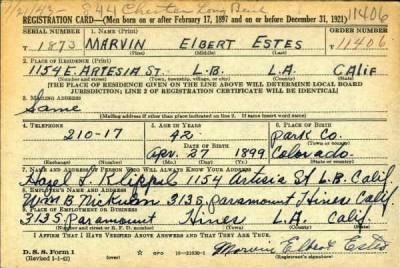 1/21/43 844 Chester Long Beach 11406
REGISTRATION CARD—(Men born on or after February 17, 1897 and on or before December 31, 1921)
SERIAL NUMBER 1. NAME (Print) ORDER NUMBER
T 1873 MARVIN Elbert Estes 11406
(First) (Middle) (Last)
2. PLACE OF RESIDENCE (Print)
1154 E. ARTESIA St. L.B. L.A. CALIF
(Number and street) (Town, township, village, or city) (County) (State)
[THE PLACE OF RESIDENCE GIVEN ON THE LINE ABOVE WILL DETERMINE LOCAL BOARD
JURISDICTION; LINE 2 OF REGISTRATION CERTIFICATE WILL BE IDENTICAL]
3. MAILING ADDRESS
Same
[Mailing address if other than place indicated on line 2. If same insert word same]
4. TELEPHONE 5. AGE IN YEARS 6. PLACE OF BIRTH
210-17 42 Park Co.
DATE OF BIRTH (Town or county)
Apr. 27 1899 Colorado
(Exchange) (Number) (Mo.) (Day) (Yr.) (State or country)
7. NAME AND ADDRESS OF PERSON WHO WILL ALWAYS KNOW YOUR ADDRESS
Hazel I. 1154 Artesia St L.B. Calif.
8. EMPLOYER'S NAME AND ADDRESS
Wm B. 3135 Paramount Hines Calif.
9. PLACE OF EMPLOYMENT OR BUSINESS
3135 Paramount Hines L.A. Calif.
(Number and street or R. F. D. number) (Town) (County) (State)
I AFFIRM THAT I HAVE VERIFIED ABOVE ANSWERS AND THAT THEY ARE TRUE.
D. S. S. Form 1
(Revised 1-1-42) (over) GPO 16—21630-1 Marvin Elbert Estes